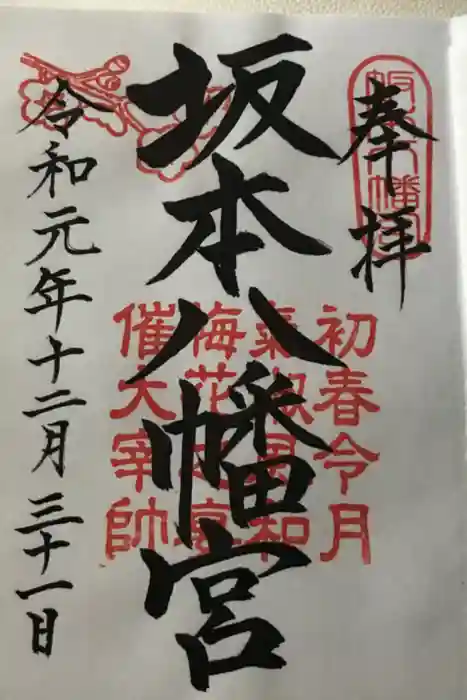 奉拝
坂本八幡宮
令和元年十二月三十一日
坂本八幡宮
初春令月
氣淑風和
梅花之宴
催大宰帥